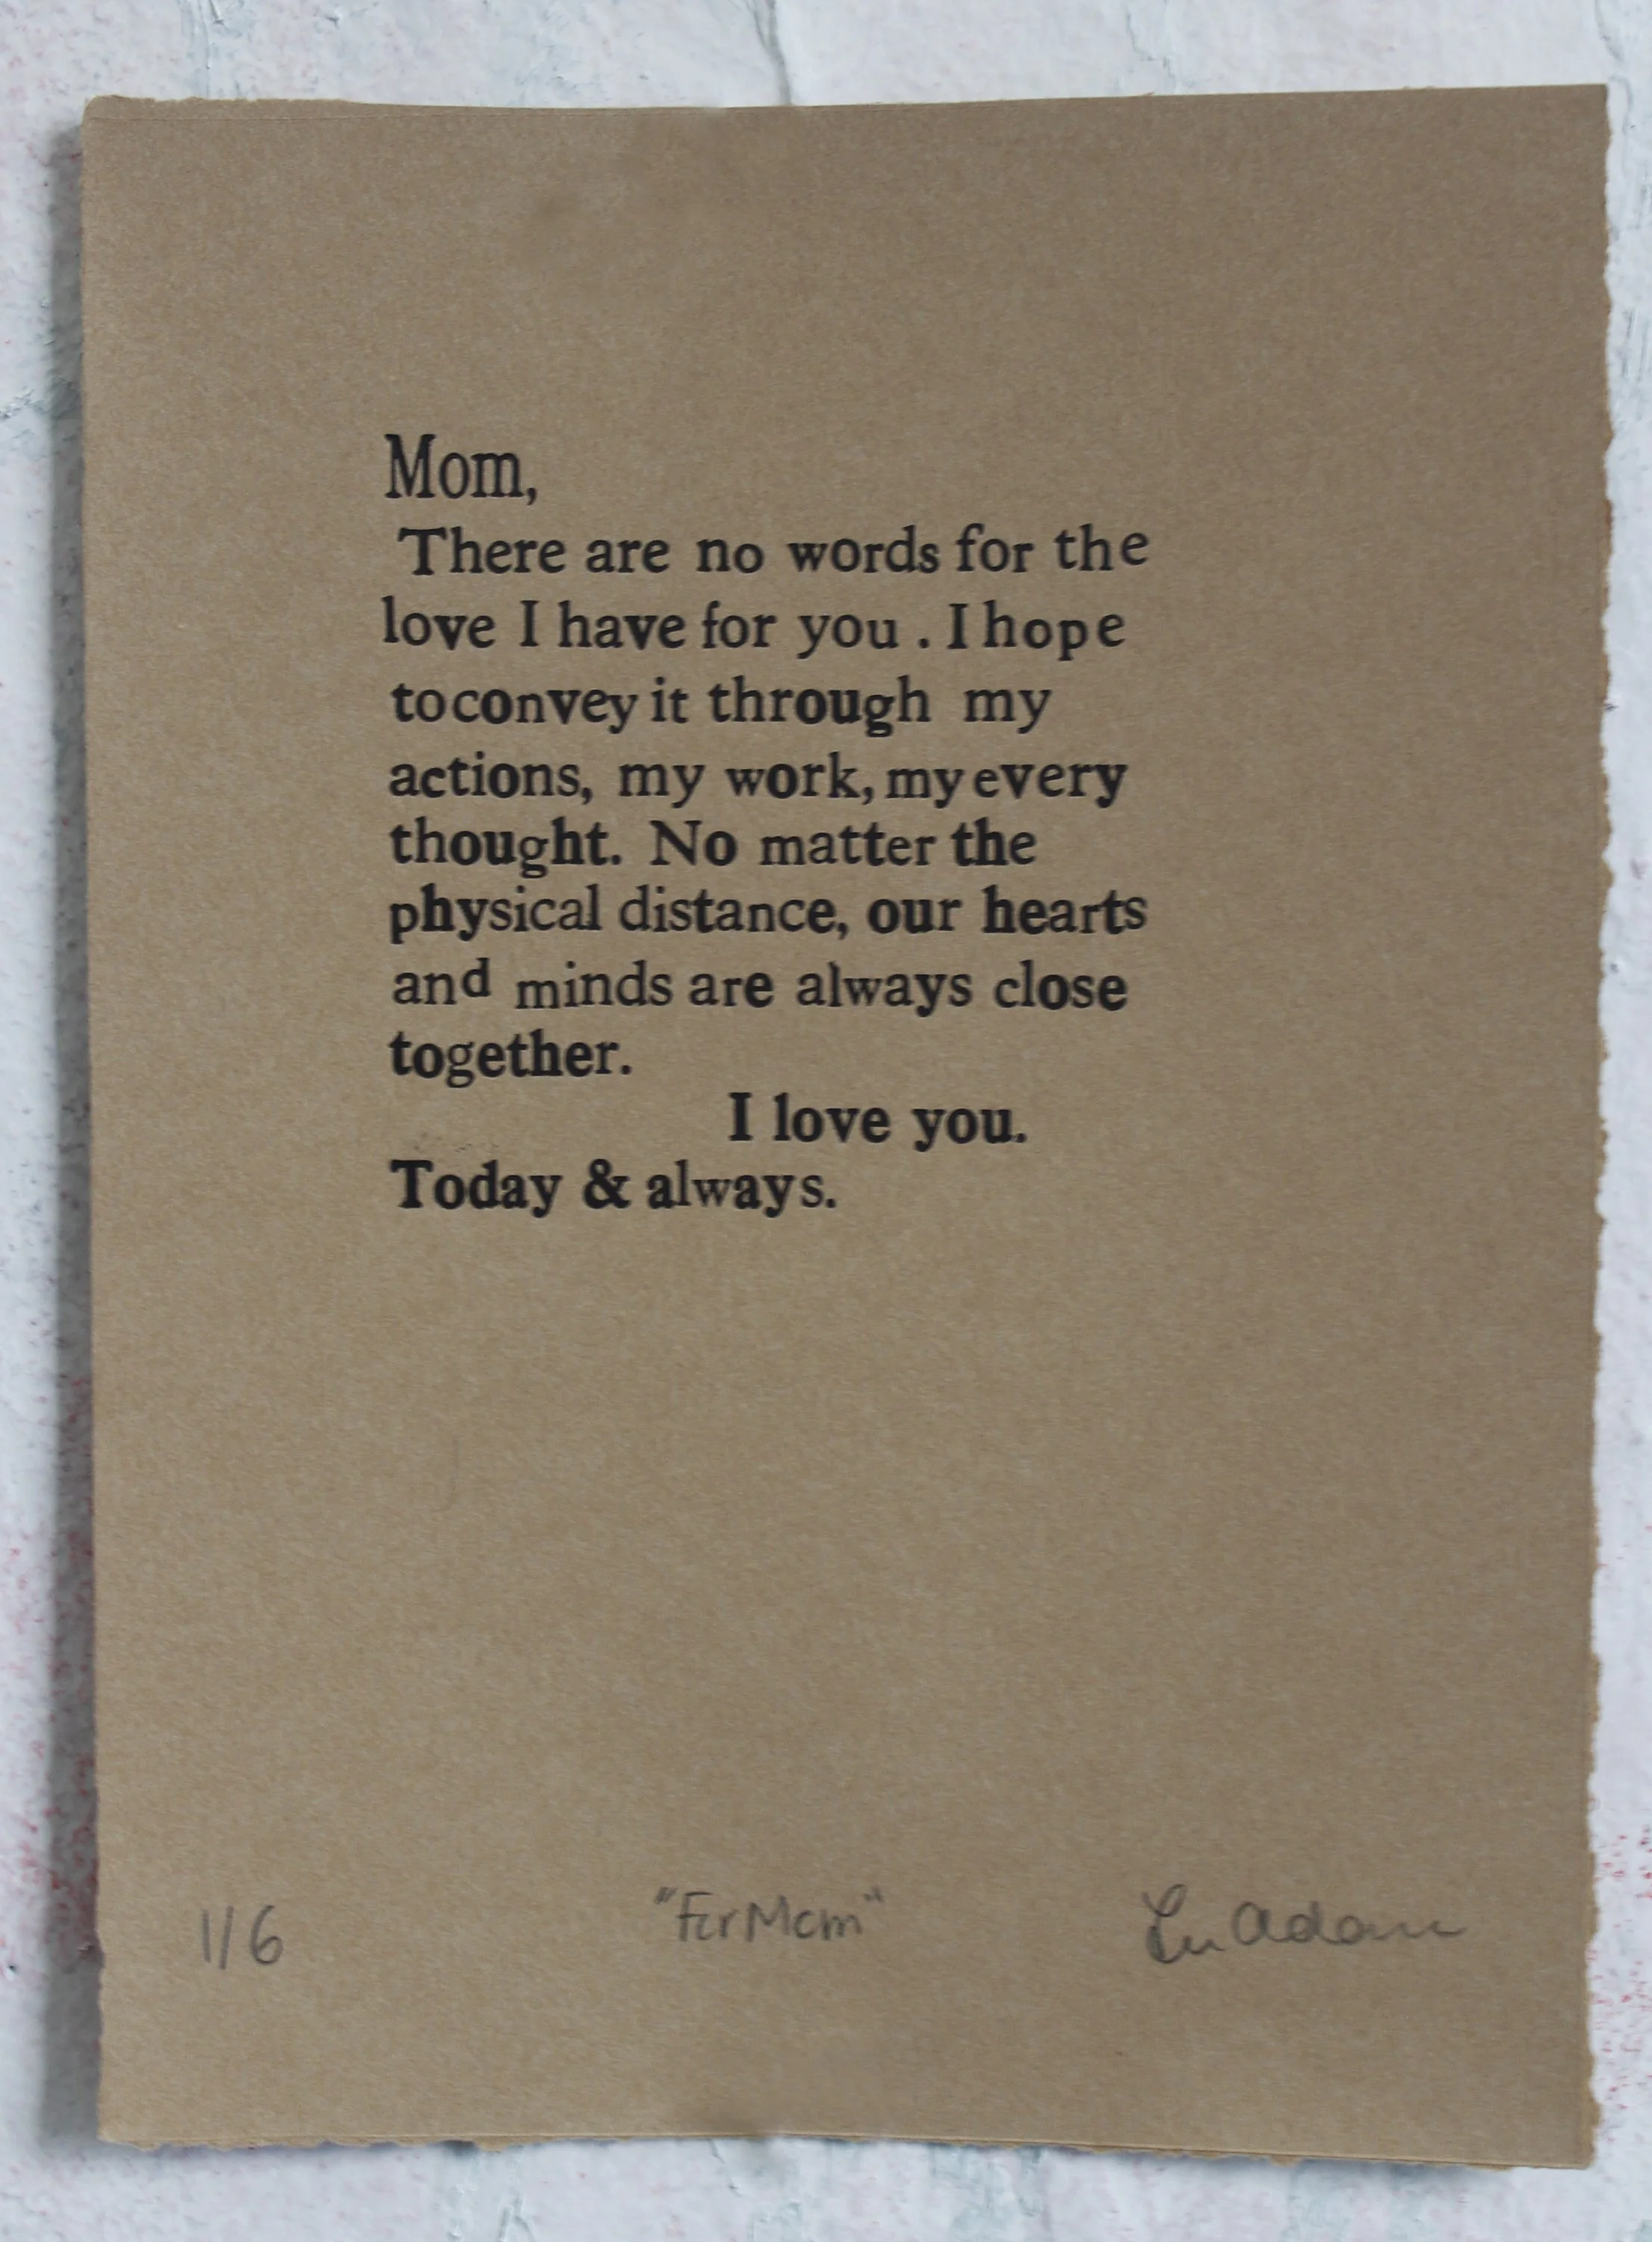 Mom,
There are no words for the
love I have for you . I hope
to convey it through my
actions, my work, my every
thought. No matter the
physical distance, our hearts
and minds are always close
together.
I love you.
Today & always.
1/6 "For Mom"